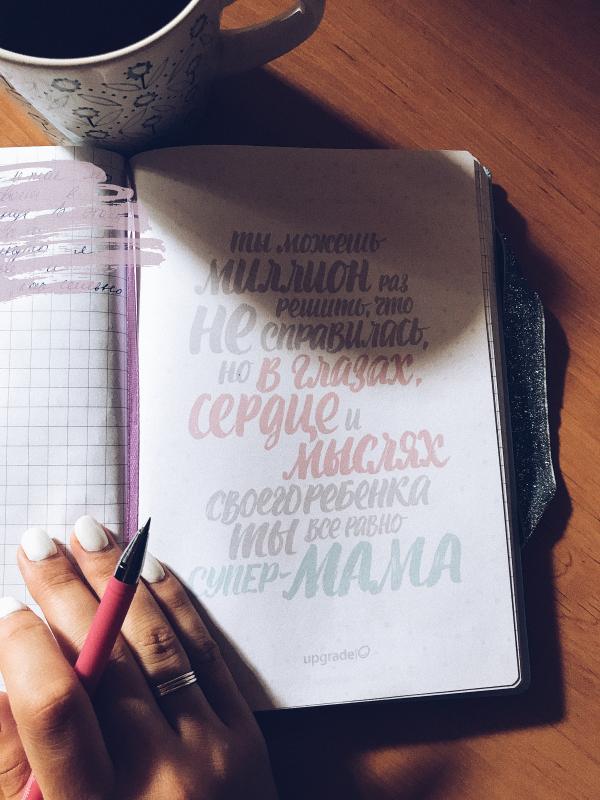 ты можешь
миллион раз
решить, что
не справилась,
но в глазах,
сердце и
мыслях
своего ребенка
ты все равно
супер-мама
upgrade